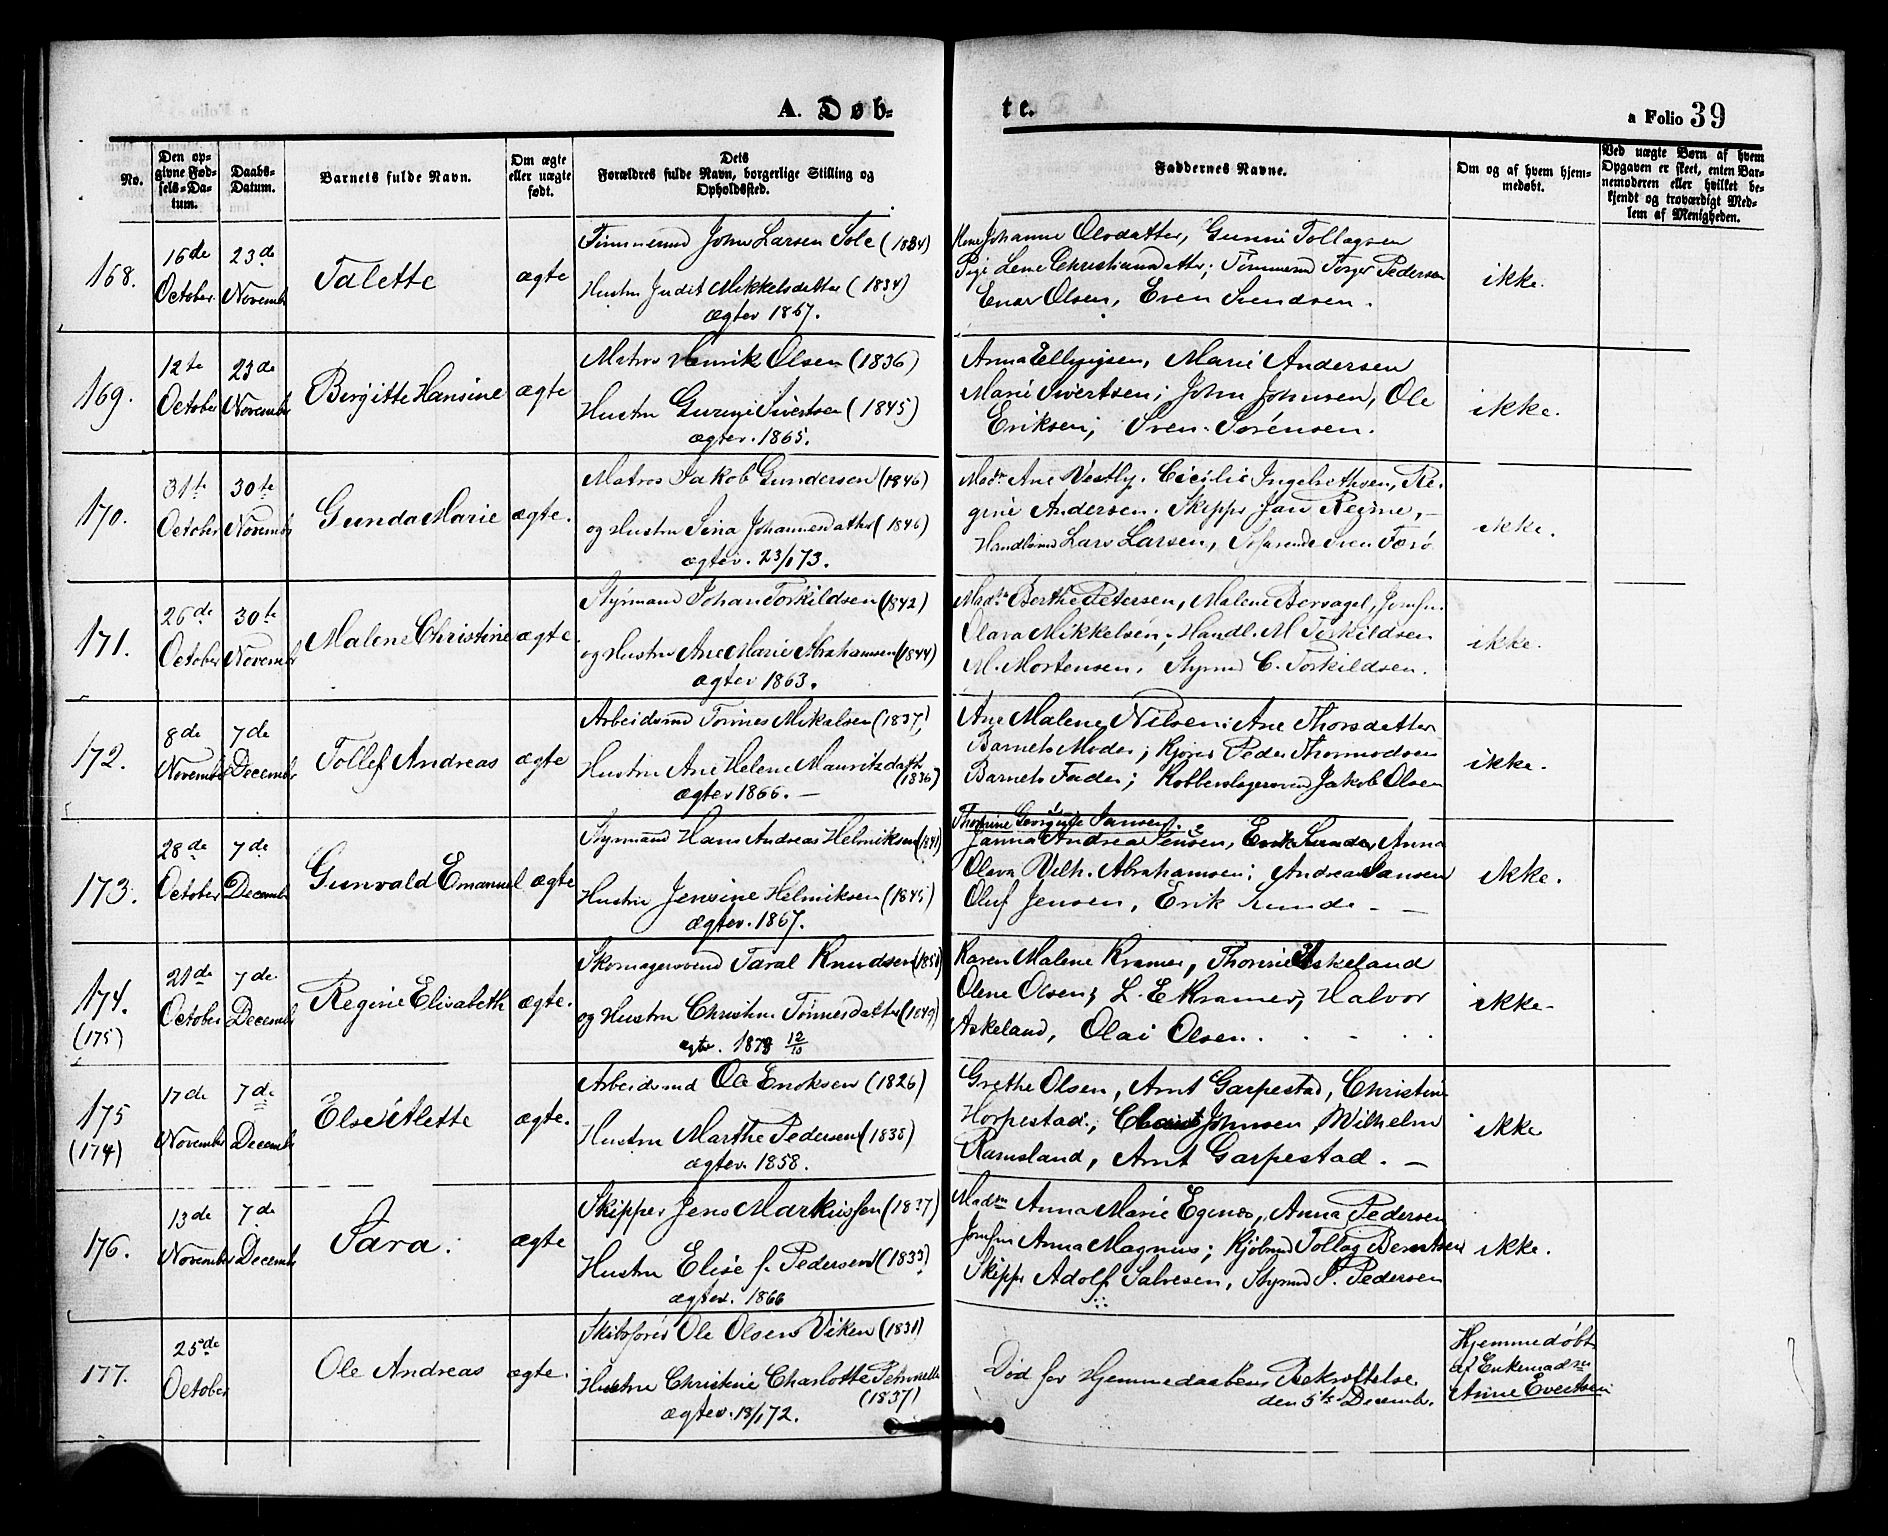 A. Døb-
te.
a Folio 39
No.
Den op-
givne Fød-
sels-Da-
tum.
Daabs-
Datum.
Barnets fulde Navn.
Om ægte
eller uægte
født.
Dets
Forældres fulde Navn, borgerlige Stilling og
Opholdssted.
Faddernes Navne.
Om og af hvem hjem-
medøbt.
Ved uægte Børn af hvem
Opgaven er skeet, enten Bar-
nemoderen eller hvilket be-
kjendt og troværdigt Med-
lem af Menigheden.
168.
16de
October
23de
Novemb
Talette
ægte
Tømmermd John Larsen Sole (1834)
Hustru Judit Mikkelsdatter (1834)
ægtev 1867.
Johanne Olsdatter, Gunni Tollagsen
Pige Lene Christiansdatter; Tømmermd Torger Pedersen
Enar Olsen, Even Svendsen.
ikke.
169.
12te
October
23de
Novemb
Birgitte Hansine
ægte
Matros Henrik Olsen (1836)
Hustru Sivertsen (1845)
ægtev. 1865.
Anna Marie Andersen
Marie Sivertsen; John Johnsen, Ole
Eriksen; Sven Sørensen.
ikke.
170.
31te
October
30te
Novemb
Gunda Marie
ægte.
Matros Jakob Gundersen (1846)
og Hustru Sina Johannesdatter (1846)
ægtev. 23/1 73.
Mads Ane Vestly. Cicilie Ingebrethsen, Re-
gine Andersen. Skipper Jan Regine,
Lars Larsen, Søfarende Sven Færø
ikke.
171.
26de
October
30te
Novemb
Malene Christine
ægte.
Styrmand Johan Torkildsen (1842)
og Hustru Ane Marie Abrahamsen (1844)
ægtev 1863.
Mads Berthe Petersen, Malene Borsagel, Jomfru
Olava Mikkelsen; Handl. M Torkildsen
M. Mortensen, Styrmd C. Torkildsen.
ikke.
172.
8de
November
7de
Decembr
Tollef Andreas
ægte
Arbeidsmd Tønnes Mikalsen (1837)
Hustru Ane Helene Mauritzdatter
(1836)
ægtev 1866.
Ane Malene Nilsen; Ane Thorsdatter
Barnets Moder; Peder Thormodsen
Barnets Fader; Kobberslagersvend Jakob Olsen
ikke.
173.
28de
October
7de
Decemb
Gunvald Emanuel
ægte
Styrmand Hans Andreas Helmiksen (1841)
Hustru Jensine Helmiksen (1845)
ægtev. 1867.
Georgine Jansen.
Janna Andrea Jensen, Anna
Olava Vilh. Abrahamsen; Andreas Jansen
Oluf Jensen, Erik Lunde
ikke.
174.
(175)
21de
October
7de
Decemb
Regine Elisabeth
ægte.
Skomagersvend Taral Knudsen (1850)
og Hustru Christine Tønnesdatter (1849)
ægtev. 1873 12/10
Karen Malene Kramer, Thorine Askeland
Olene Olsen; L. E Kramer, Halvor
Askeland, Olai Olsen.
ikke
175
(174)
17de
November
7de
Decemb
Else Alette
ægte.
Arbeidsmd Ole Enoksen (1826)
Hustru Marthe Pedersen (1838)
ægtev. 1858.
Grethe Olsen, Arnt Garpestad, Christine
Horpestad; Johnsen, Wilhelm
Ramsland, Arnt Garpestad.
ikke
176.
13de
November
7de
Decemb
Sara.
ægte
Skipper Jens Markussen (1837)
Hustru Elise f. Pedersen (1833)
ægtev. 1866
Madm Anna Marie Egenes, Anna Pedersen
Jomfru Anna Magnus; Kjøbmd Tollag Berntsen
Skipper Adolf Salvesen, Styrmd P. Pedersen
ikke.
177.
25de
October
Ole Andreas
ægte.
Skibsfører Ole Olsen Viken (1831)
Hustru Christine Charlotte Petronelle
(1837)
ægtev. 13/1 72.
Død før Hjemmedaabens Bekræftelse
den 5te Decemb.
Hjemmedøbt
af Enkemadm
Anne Evertsen